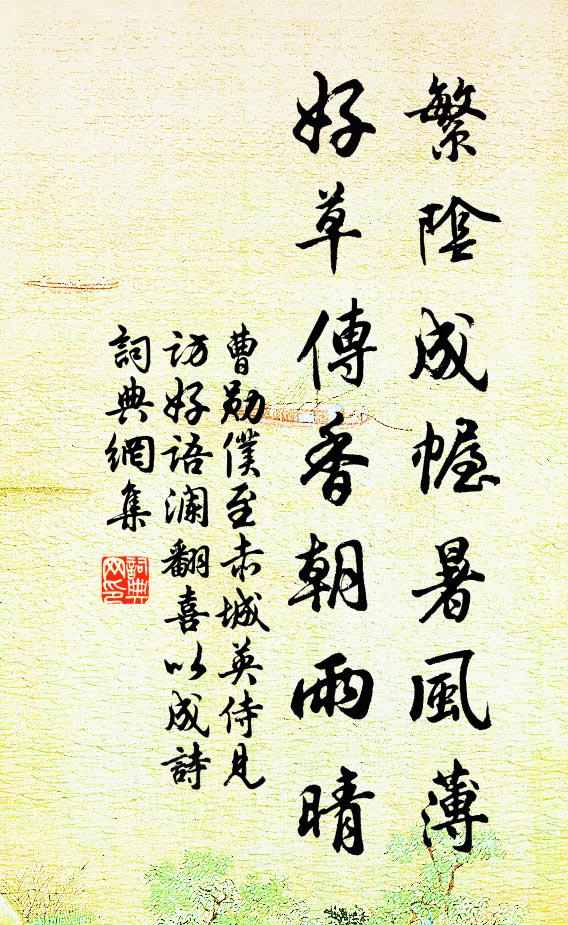 繁陰成幄暑風薄
好草傳香朝雨晴
曹勛僕至赤城英侍見
訪好語瀾翻喜以成詩
詞典網集
詞典
网印